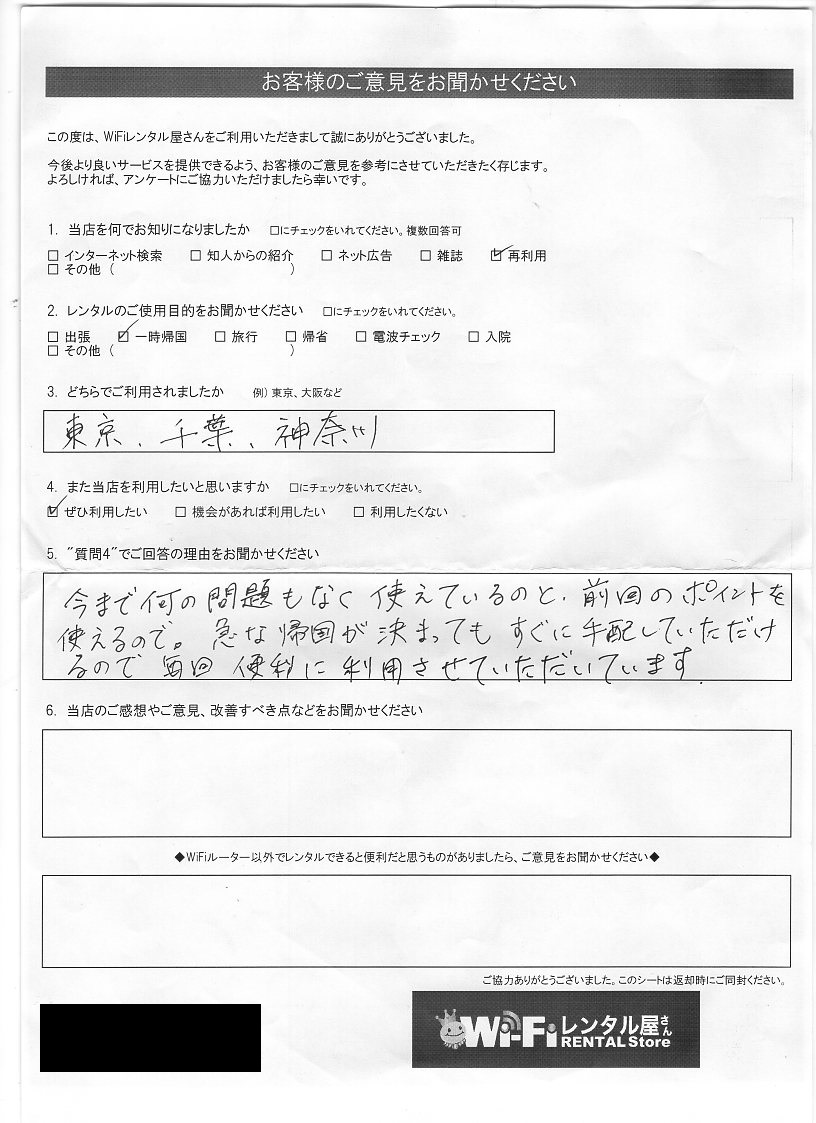 お客様のご意見をお聞かせください
この度は、WiFiレンタル屋さんをご利用いただきまして誠にありがとうございました。
今後より良いサービスを提供できるよう、お客様のご意見を参考にさせていただきたく存じます。
よろしければ、アンケートにご協力いただけましたら幸いです。
1. 当店を何でお知りになりましたか □にチェックをいれてください。複数回答可
□ インターネット検索 □ 知人からの紹介 □ ネット広告 □ 雑誌 ☑ 再利用
□ その他 ( )
2. レンタルのご使用目的をお聞かせください □にチェックをいれてください。
□ 出張 ☑ 一時帰国 □ 旅行 □ 帰省 □ 電波チェック □ 入院
□ その他 ( )
3. どちらでご利用されましたか 例) 東京、大阪など
東京、千葉、神奈川
4. また当店を利用したいと思いますか □にチェックをいれてください。
☑ ぜひ利用したい □ 機会があれば利用したい □ 利用したくない
5. "質問4"でご回答の理由をお聞かせください
今まで何の問題もなく使えているのと、前回のポイントを
使えるので。急な帰国が決まってもすぐに手配していただけ
るので毎回便利に利用させていただいています.
6. 当店のご感想やご意見、改善すべき点などをお聞かせください
◆WiFiルーター以外でレンタルできると便利だと思うものがありましたら、ご意見をお聞かせください◆
ご協力ありがとうございました。このシートは返却時にご同封ください。
Wi-Fiレンタル屋さん
RENTAL Store